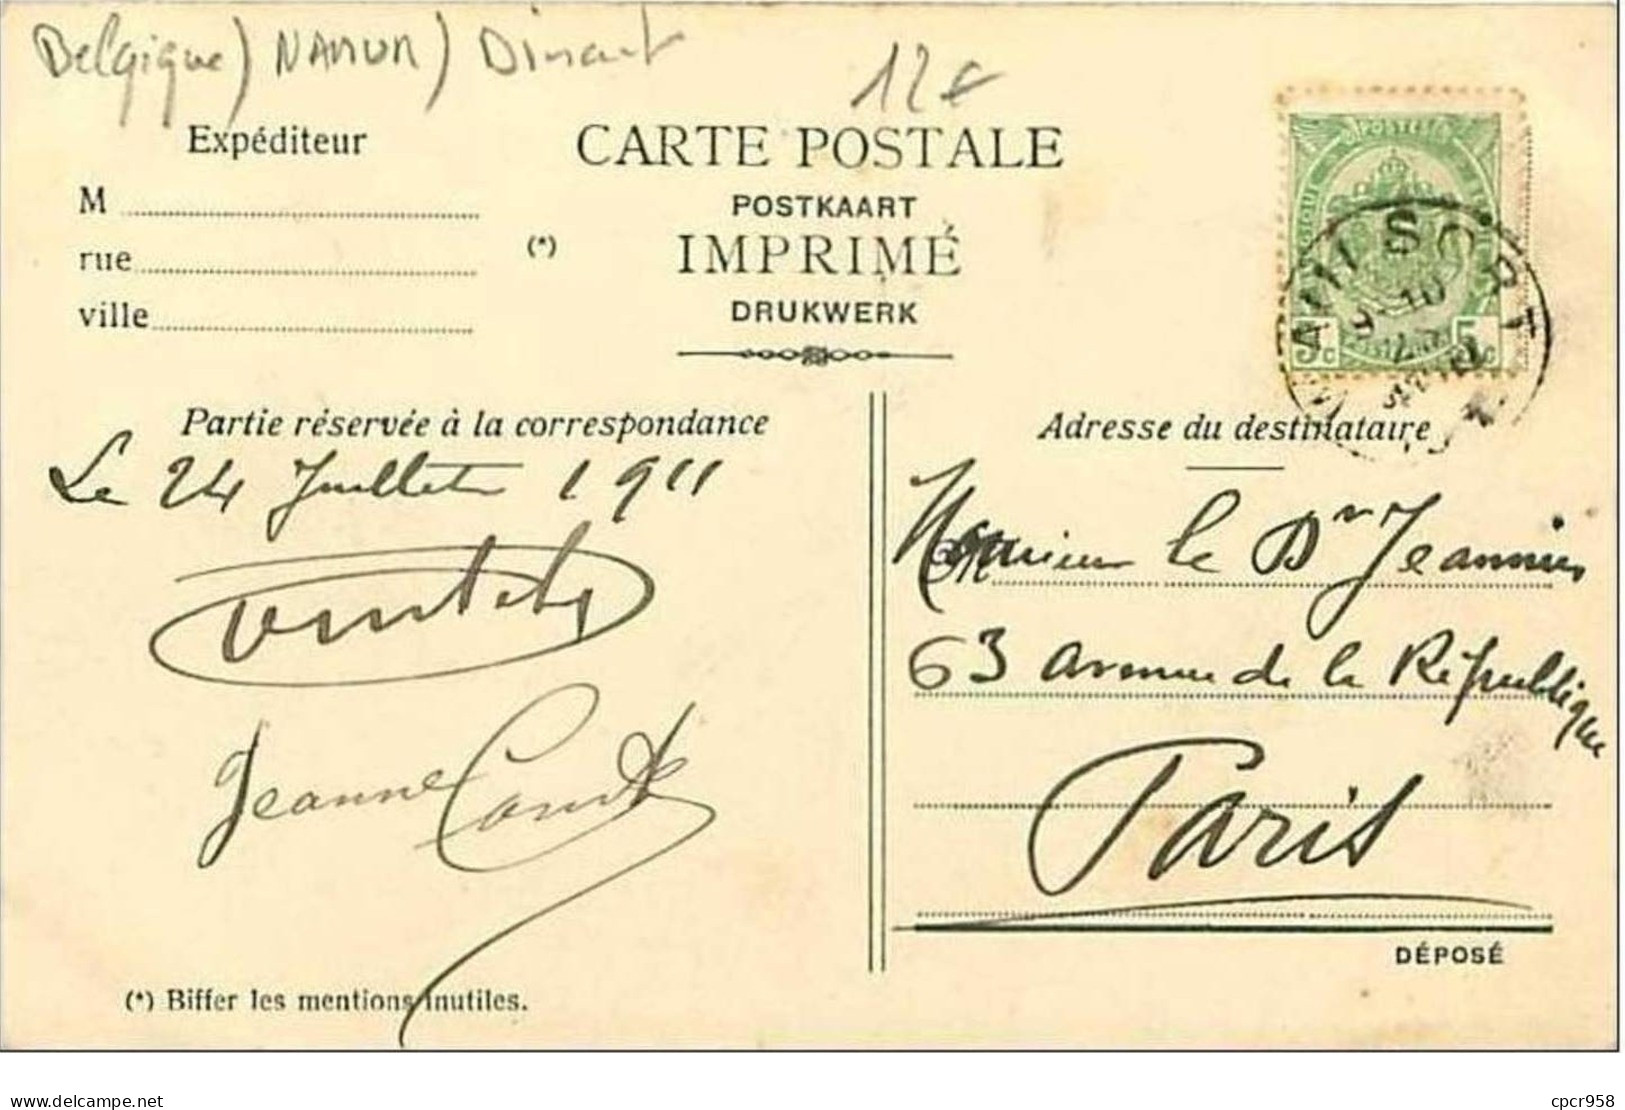 Belgique) NAMUR) Dinant
12€
Expéditeur
M
rue
ville
CARTE POSTALE
POSTKAART
(*) IMPRIMÉ
DRUKWERK
POSTES
5c 5c
Partie réservée à la correspondance
Le 24 Juillet 1911
Jeanne
(*) Biffer les mentions inutiles.
Adresse du destinataire
Monsieur le Dr Jeannin
63 avenue de la République
Paris
DÉPOSÉ
delcampe.net
cpcr958